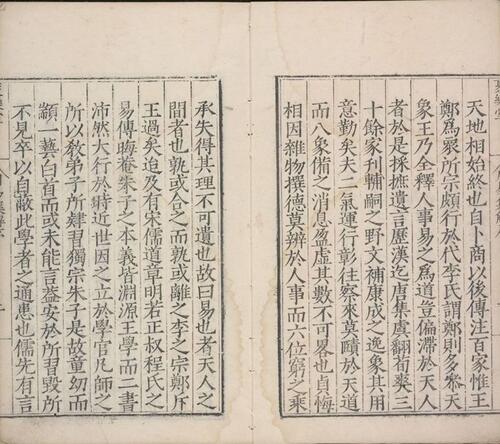 天地相始終也自卜商以後傳注百家惟王
鄭爲衆所宗頗行於代李氏謂鄭則多參天
象王乃全釋人事易之爲道豈偏滯於天人
者於是採摭遺言歷漢迄唐集虞翻荀爽三
十餘家刋輔嗣之野文補康成之逸象其用
意勤矣夫二氣運行彰往察來莫賾於天道
而八象備之消息盈虛其數不可畧也貞悔
相因雜物撰德莫辨於人事而六位窮之乘
承失得其理不可遺也故曰易也者天人之
間者也孰或合之而孰或離之李之宗鄭斥
王過矣迨及有宋儒道章明若正叔程氏之
易傳晦菴朱子之本義皆淵源王學而二書
沛然大行於時近世因之立於學官凡師之
所以教弟子所肄習獨宗朱子是故童幼而
顓一藝白首而或未能言葢安於所習毀所
不見卒以自蔽此學者之通患也儒先有言